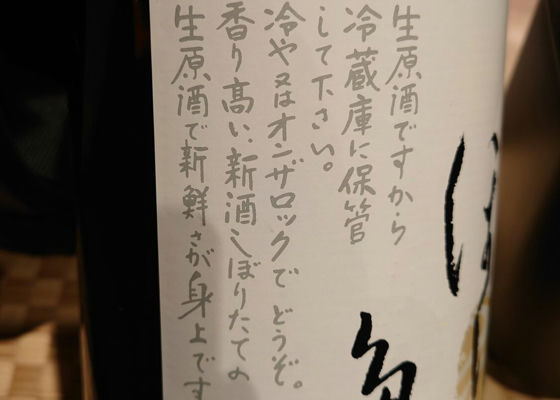 生原酒ですから
冷蔵庫に保管
して下さい。
冷や又はオンザロックでどうぞ。
香り高い、新酒しぼりたての
生原酒で新鮮さが身上です